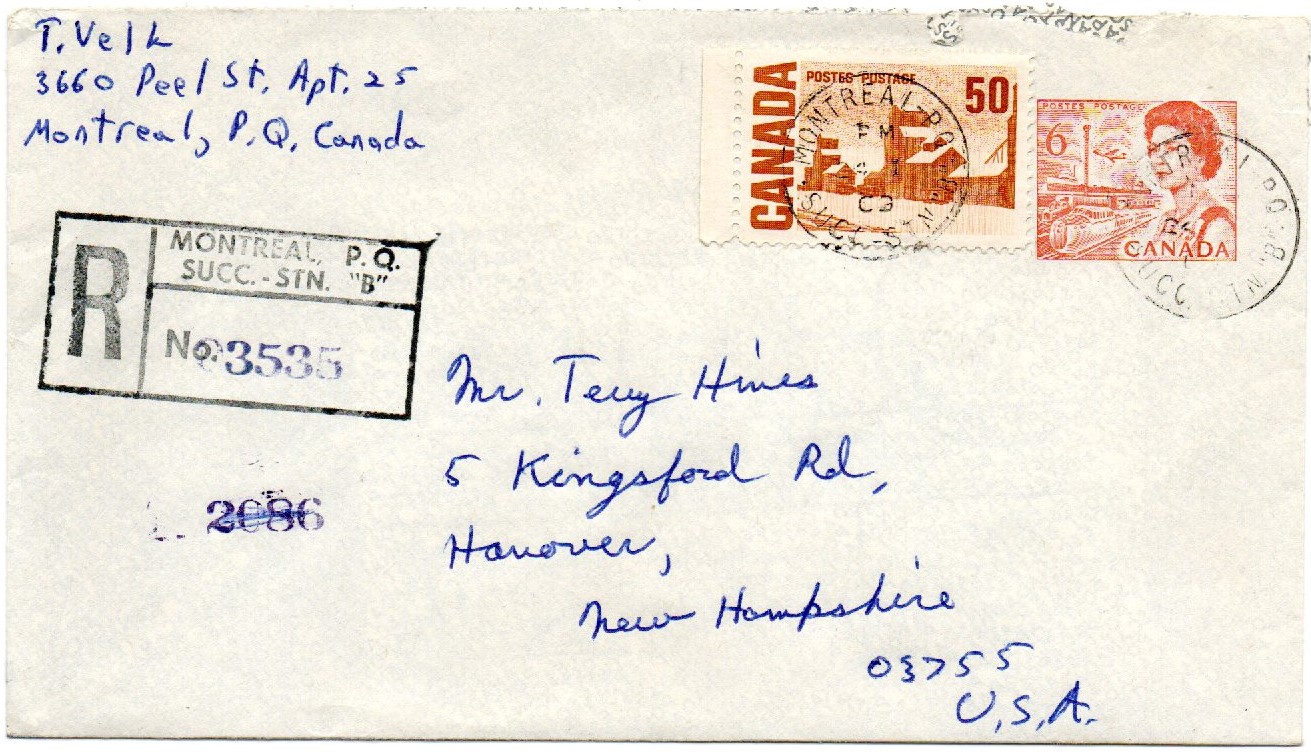 T. Velk
3660 Peel St. Apt. 25
Montreal, P.Q. Canada
CANADA
POSTES POSTAGE
50
POSTES POSTAGE
6
CANADA
MONTREAL P.Q.
PM
SUCC.-STN "B"
R
MONTREAL, P.Q.
SUCC.-STN. "B"
No. 3535
Mr. Terry Hines
5 Kingsford Rd,
Hanover,
New Hampshire
03755
U.S.A.
2086